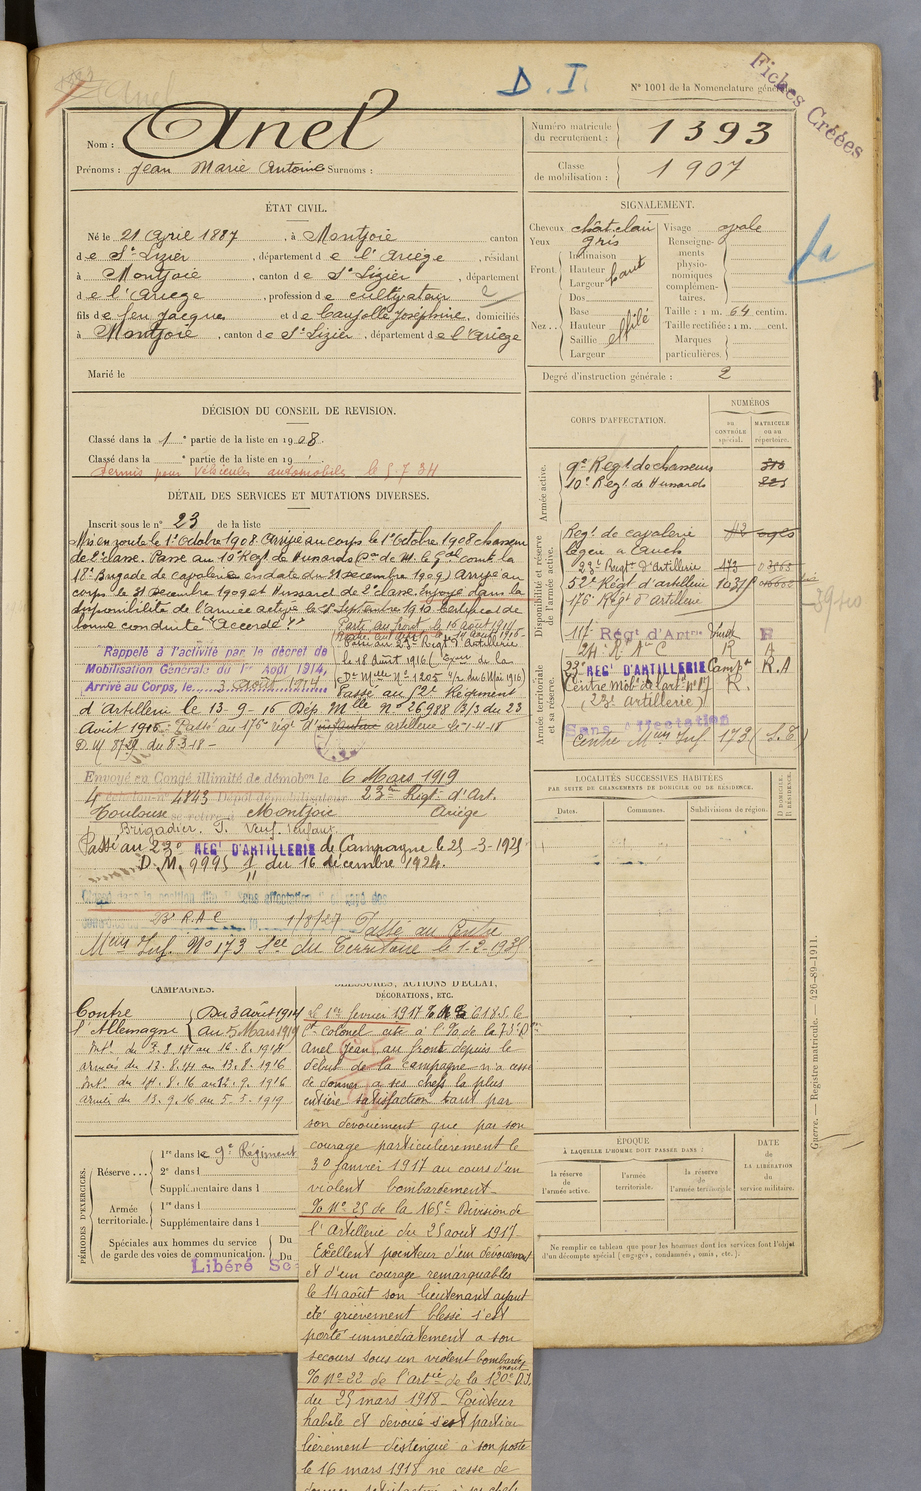 D. I.
N° 1001 de la Nomenclature générale
Fiches Créées
Nom : Anel
Prénoms : Jean Marie Antoine Surnoms :
Numéro matricule du recrutement : 1393
Classe de mobilisation : 1907
ÉTAT CIVIL.
Né le 21 Avril 1887, à Montjoie canton
de St Lizier, département de l'Ariège, résidant
à Montjoie, canton de St Lizier, département
de l'Ariege, profession de cultivateur
fils de feu Jacques et de Caujolle Joséphine, domiciliés
à Montjoie, canton de St Lizier, département de l'Ariège
Marié le
SIGNALEMENT.
Cheveux chât. clair
Yeux gris
Front. Inclinaison
Hauteur haut
Largeur
Nez.. Dos
Base
Hauteur
Saillie effilé
Largeur
Visage ovale
Renseignements physionomiques complémentaires.
Taille : 1 m. 64 centim.
Taille rectifiée : 1 m. cent.
Marques particulières.
Degré d'instruction générale : 2
DÉCISION DU CONSEIL DE REVISION.
Classé dans la 1e partie de la liste en 1908.
Classé dans la e partie de la liste en 19
Permis pour Véhicules automobiles le 5.7.34
DÉTAIL DES SERVICES ET MUTATIONS DIVERSES.
Inscrit sous le n° 23 de la liste
Mis en route le 1er Octobre 1908. Arrivé au corps le 1er Octobre 1908 chasseur
de 2e classe. Passé au 10e Régt de Hussards
18e Brigade de cavalerie en date du 21 Decembre 1909) Arrivé au
corps le 31 Decembre 1909 et Hussard de 2e classe. Envoyé dans la
disponibilité de l'armée active le Septembre 1910. Certificat de
bonne conduite "Accordé".
Parti au front le 16 août 1914
Rappelé à l'activité par le décret de
Mobilisation Générale du 1er Août 1914,
Arrivé au Corps, le 3 août 1914
Passé au 23e Régt d'Artillerie
le 18 Août 1916
Passé au 52e Régiment
d'Artillerie le 13-9-16 Dép. Mlle N° 26988 B/3 du 23
Août 1916. Passé au 176e rég. d'infanterie artillerie le 1-4-18
du 8-3-18-
Envoyé en Congé illimité de démobon le 6 Mars 1919
4e échelon n° 4843 Dépôt démobilisateur 23e Régt d'Art.
Toulouse se retire à Montjoie Ariège
Brigadier.
Passé au 23e REGt D'ARTILLERIE de Campagne le 25-3-1925
D.M. 9995 1/11 du 16 decembre 1924.
23e R.A.C. 1/8/27 Passé au Centre
Mun Inf. N° 173 du Territoire le 1-2-1935
CORPS D'AFFECTATION.
NUMÉROS
au CONTRÔLE spécial.
MATRICULE ou au répertoire.
Armée active.
9e Régt de chasseurs
10e Régt de Hussards
Disponibilité et réserve de l'armée active.
Regt de cavalerie
légere a Auch
23e Regt d'Artillerie
52e Régt d'artillerie
176e Régt d'artillerie
Armée territoriale et sa réserve.
117e Régt d'Artie
23e REGt D'ARTILLERIE Campe R.A
(23e artillerie)
Sans Affectation
Centre Mun Inf. 173
LOCALITÉS SUCCESSIVES HABITÉES
PAR SUITE DE CHANGEMENTS DE DOMICILE OU DE RÉSIDENCE.
Dates. Communes. Subdivisions de région.
D DOMICILE. R RÉSIDENCE.
CAMPAGNES.
Contre l'Allemagne { Du 3 août 1914
au 5 Mars 1919
Int. du 3.8.14 au 16.8.1914
armées du 17.8.14 au 13.8.1916
Int. du 14.8.16 au 12.9.1916
armées du 13.9.16 au 5.3.1919
BLESSURES, ACTIONS D'ÉCLAT,
DÉCORATIONS, ETC.
Le 1er fevrier 1917
Lt Colonel cité à l'
Anel Jean, au front depuis le
début de la campagne n'a cessé
de donner a ses chefs la plus
entière satisfaction tant par
son dévouement que par son
courage particulierement le
30 janvier 1917 au cours d'un
violent bombardement
% N° 25 de la 165e Division de
l'Artillerie du 25 aout 1917
Excellent pointeur d'un dévouement
et d'un courage remarquables
le 14 août son lieutenant ayant
été grièvement blessé s'est
porté immédiatement a son
secours sous un violent bombardement
% N° 22 de l'artie de la 120e D.I.
du 25 mars 1918. Pointeur
habile et devoué s'est particu
lièrement distingué à son poste
le 16 mars 1918 ne cesse de
PÉRIODES D'EXERCICES.
Réserve...
1re dans le 9e Régiment
2e dans l
Supplémentaire dans l
Armée territoriale.
1re dans l
Supplémentaire dans l
Spéciales aux hommes du service de garde des voies de communication. Du
Du
Libéré
ÉPOQUE
À LAQUELLE L'HOMME DOIT PASSER DANS :
la réserve de l'armée active.
l'armée territoriale.
la réserve de l'armée territoriale
DATE DE LA LIBÉRATION du service militaire.
Ne remplir ce tableau que pour les hommes dont les services font l'objet
d'un décompte spécial (engagés, condamnés, omis, etc.).
Guerre. — Registre matricule. — 426-89-1911.